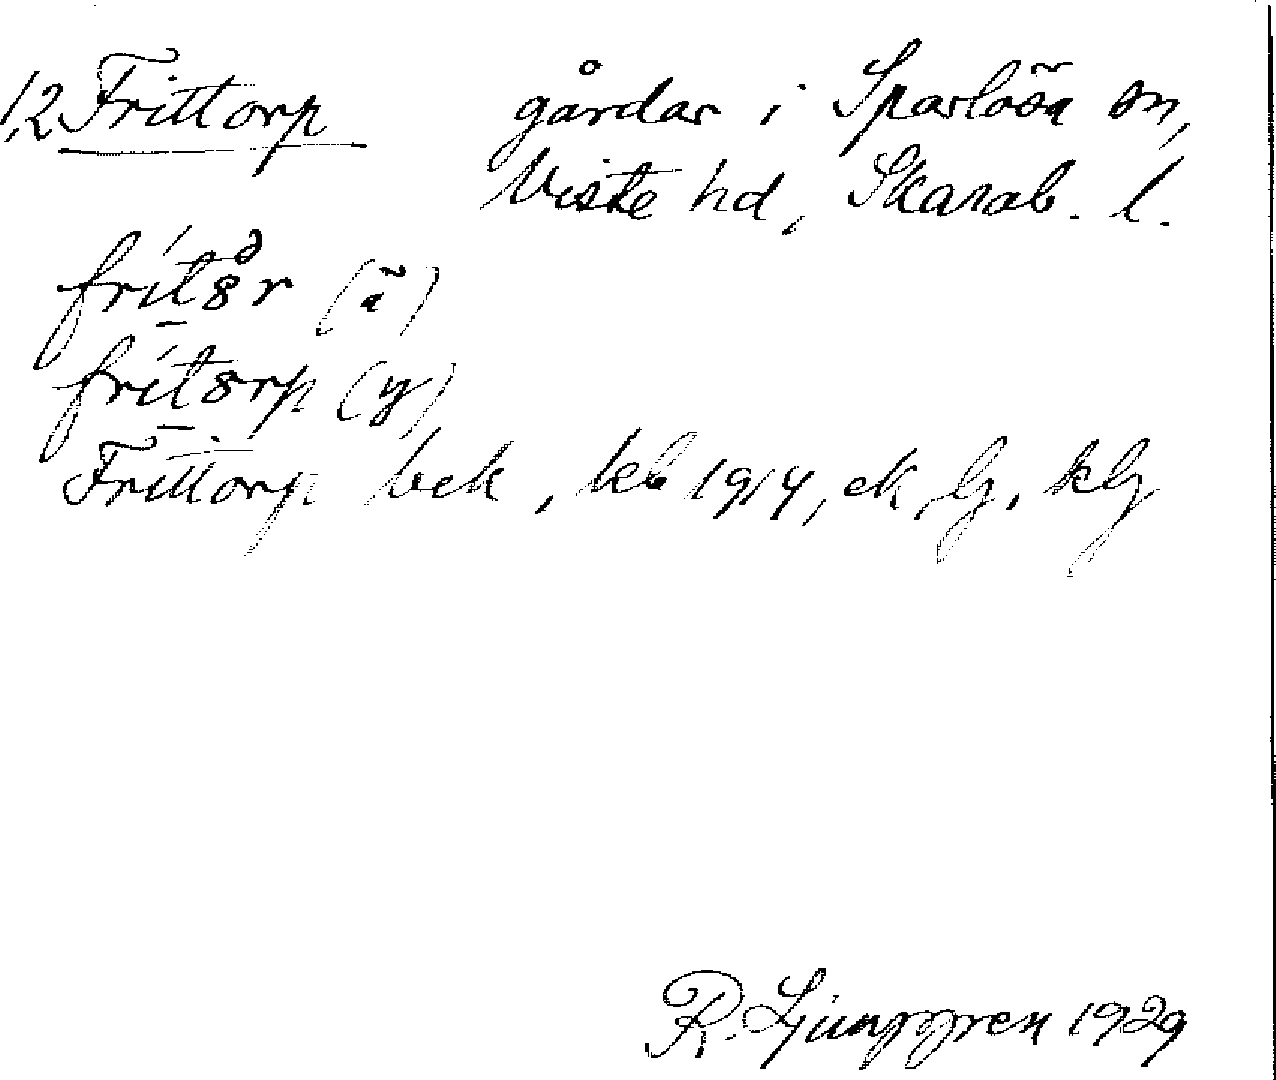 1,2 Frittorp gårdar i Sparlösa sn,
Viste hd, Skarab. l.
frít8r (ä)
frít8rp (y)
Frittorp bek, kb 1914, ek, lj, klj
R. Ljunggren 1929